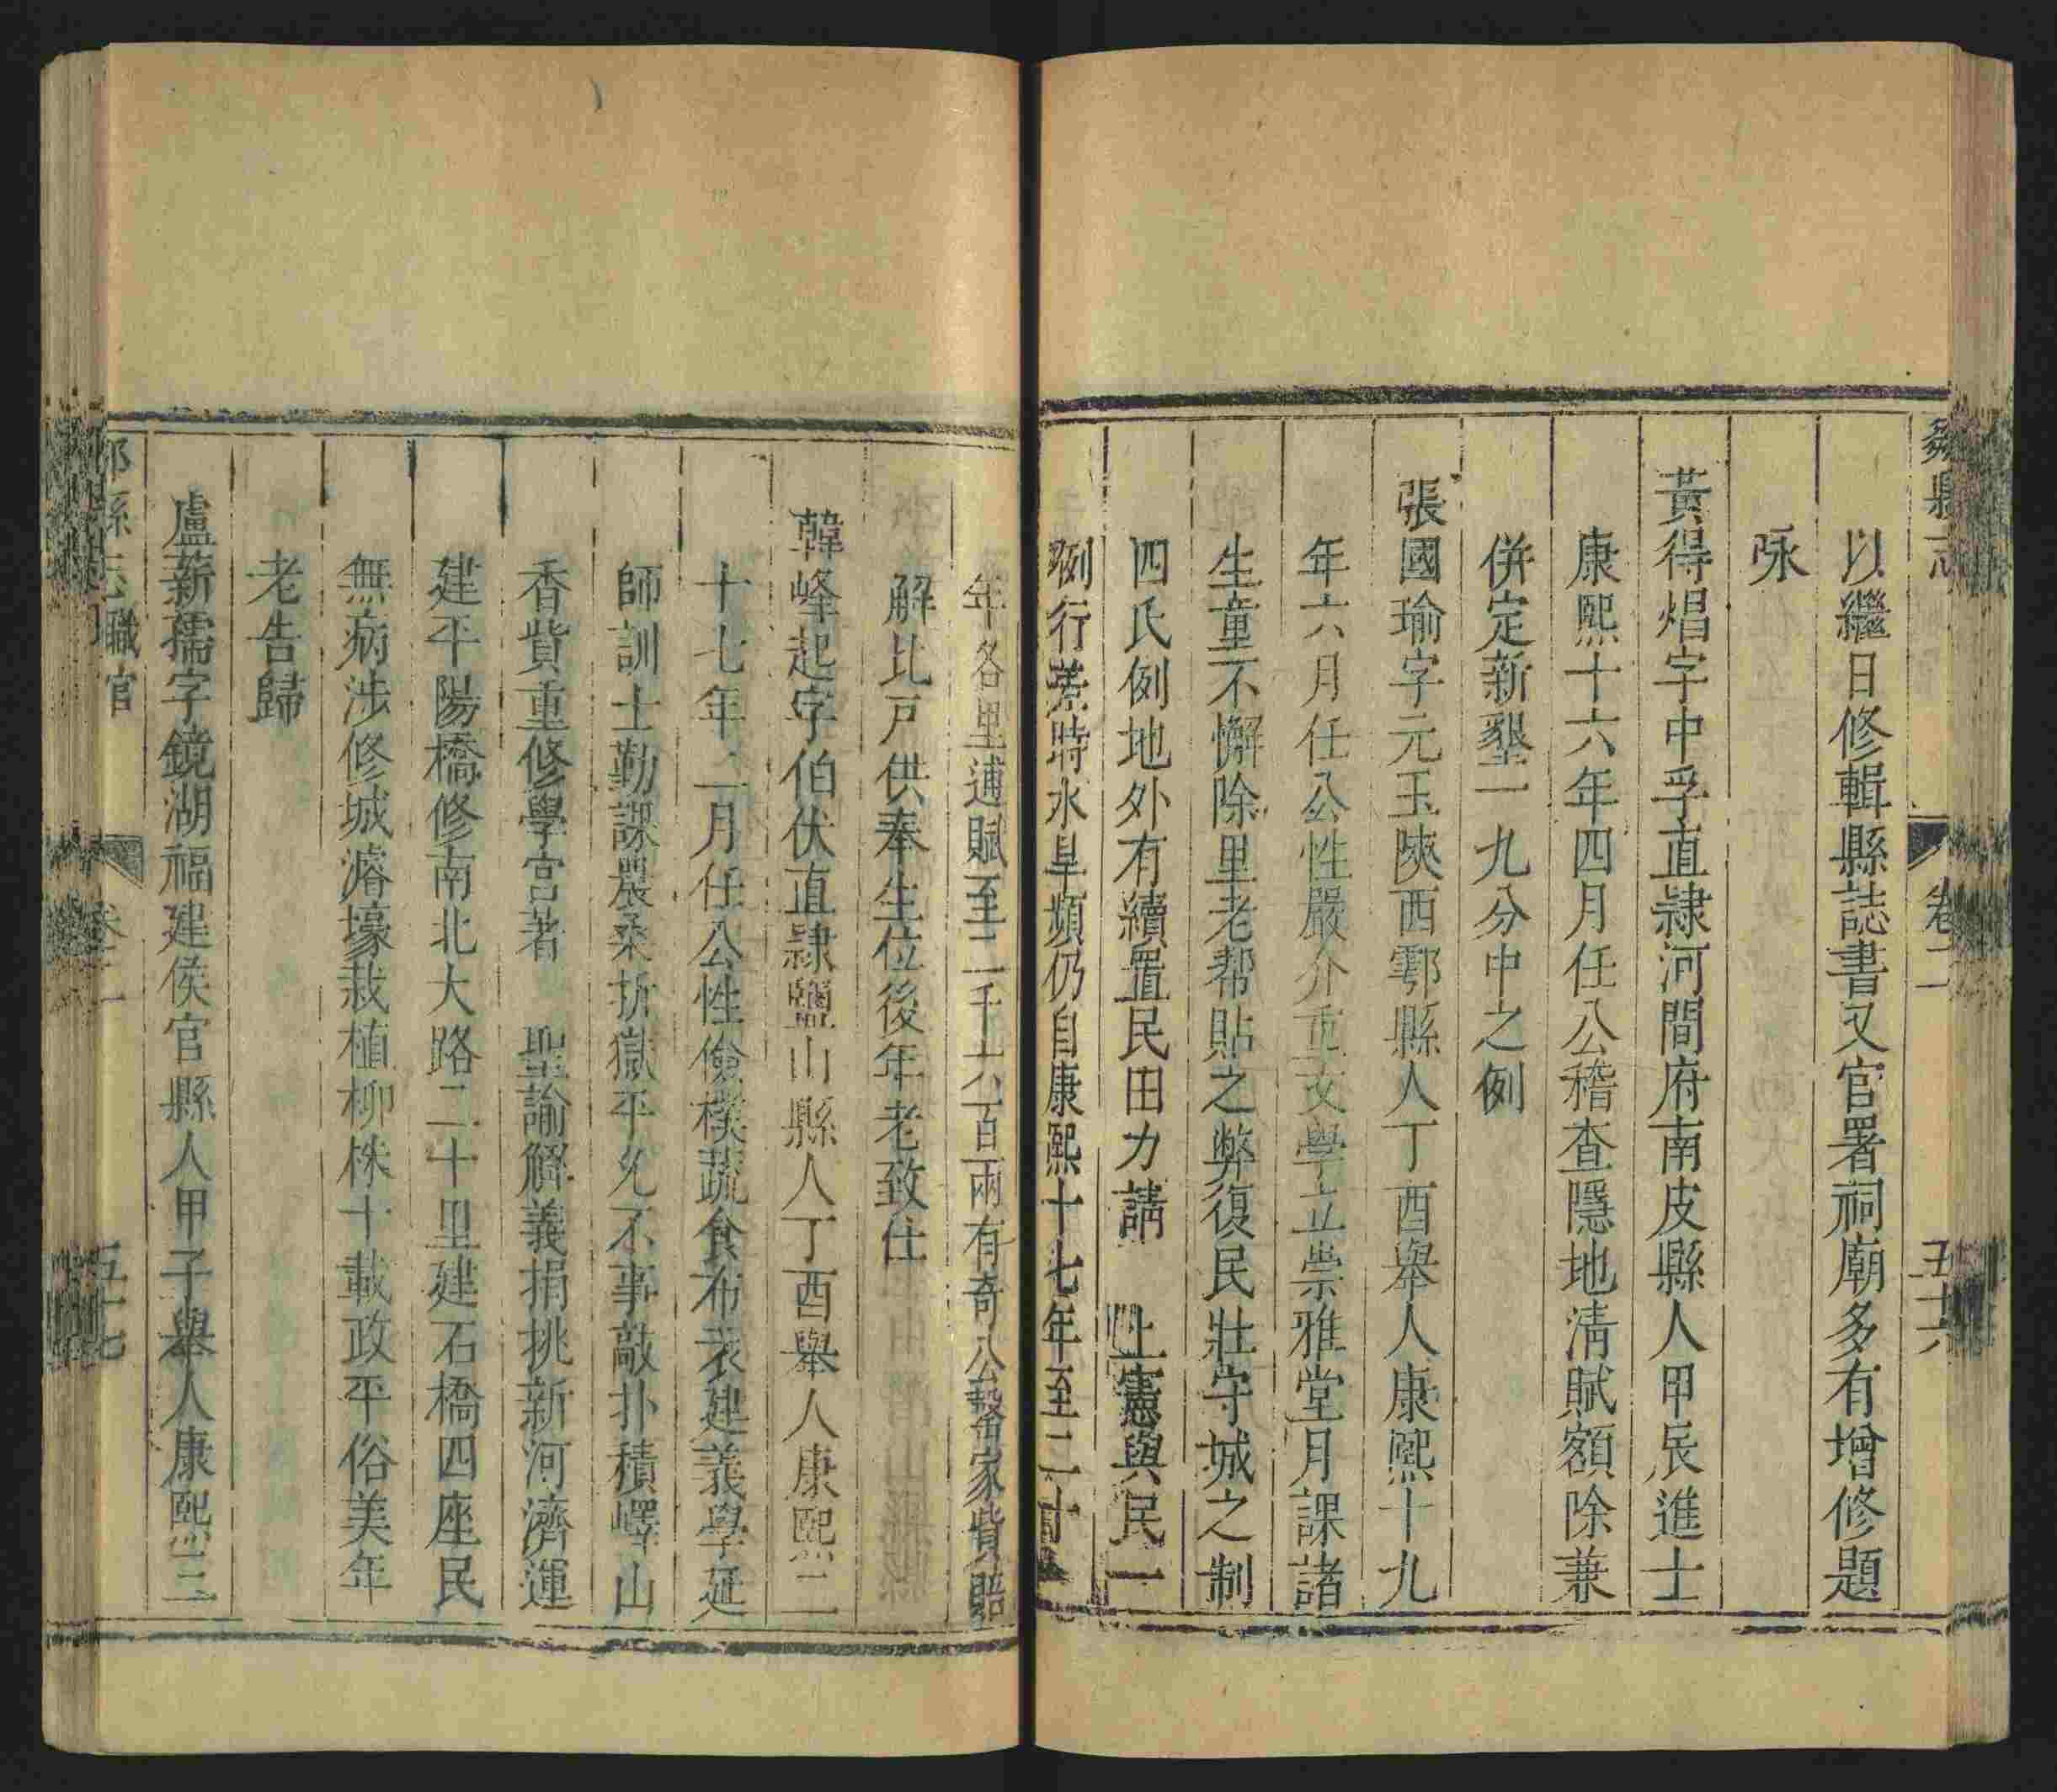 鄒縣志 卷二 五十六
以繼日修輯縣誌書又官署祠廟多有增修題
咏
黃得焻字中孚直隷河間府南皮縣人甲辰進士
康熙十六年四月任公稽查隱地清賦額除蒹
併定新墾一九分中之例
張國瑜字元玉陝西鄠縣人丁酉舉人康熙十九
年六月任公性嚴介重文學立崇雅堂月課諸
生童不懈除里老帮貼之弊復民壯守城之制
四氏例地外有續置民田力請 上憲與民一
例行差時水旱頻仍自康熙十七年至二十
年各里逋賦至二千六百兩有奇公罄家貲賠
解比戸供奉生位後年老致仕
韓峰起字伯伏直隷鹽山縣人丁酉舉人康熙二
十七年二月任公性儉樸蔬食布衣建義學延
師訓士勤課農桑折獄平允不事敲扑積嶧山
香貲重修學宮著 聖諭觧義捐挑新河濟運
建平陽橋修南北大路二十里建石橋四座民
無病涉修城濬壕栽植柳株十載政平俗美年
老告歸
盧薪孺字鏡湖福建侯官縣人甲子舉人康熙三
縣志 職官 卷二 五十七